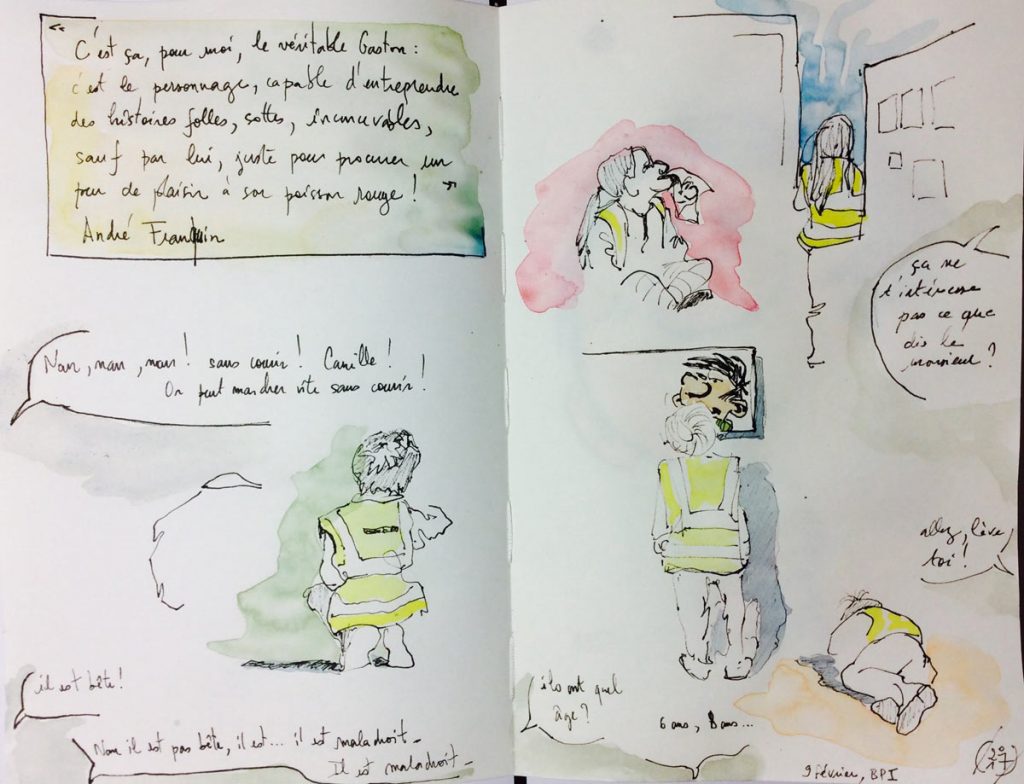 “
C'est ça, pour moi, le véritable Gaston :
c'est le personnage, capable d'entreprendre
des histoires folles, sottes, inconcevables,
sauf par lui, juste pour procurer un
peu de plaisir à son poisson rouge ! ”
André Franquin
Nan, nan, nan ! sans courir ! Camille !
On peut marcher vite sans courir !
il est bête !
Non il est pas bête, il est... il est maladroit -
Il est maladroit -
ça ne
t'intéresse
pas ce que
dis le
monsieur ?
allez, lève
toi !
ils ont quel
âge ?
6 ans, 8 ans...
9 février, BPI
20
17